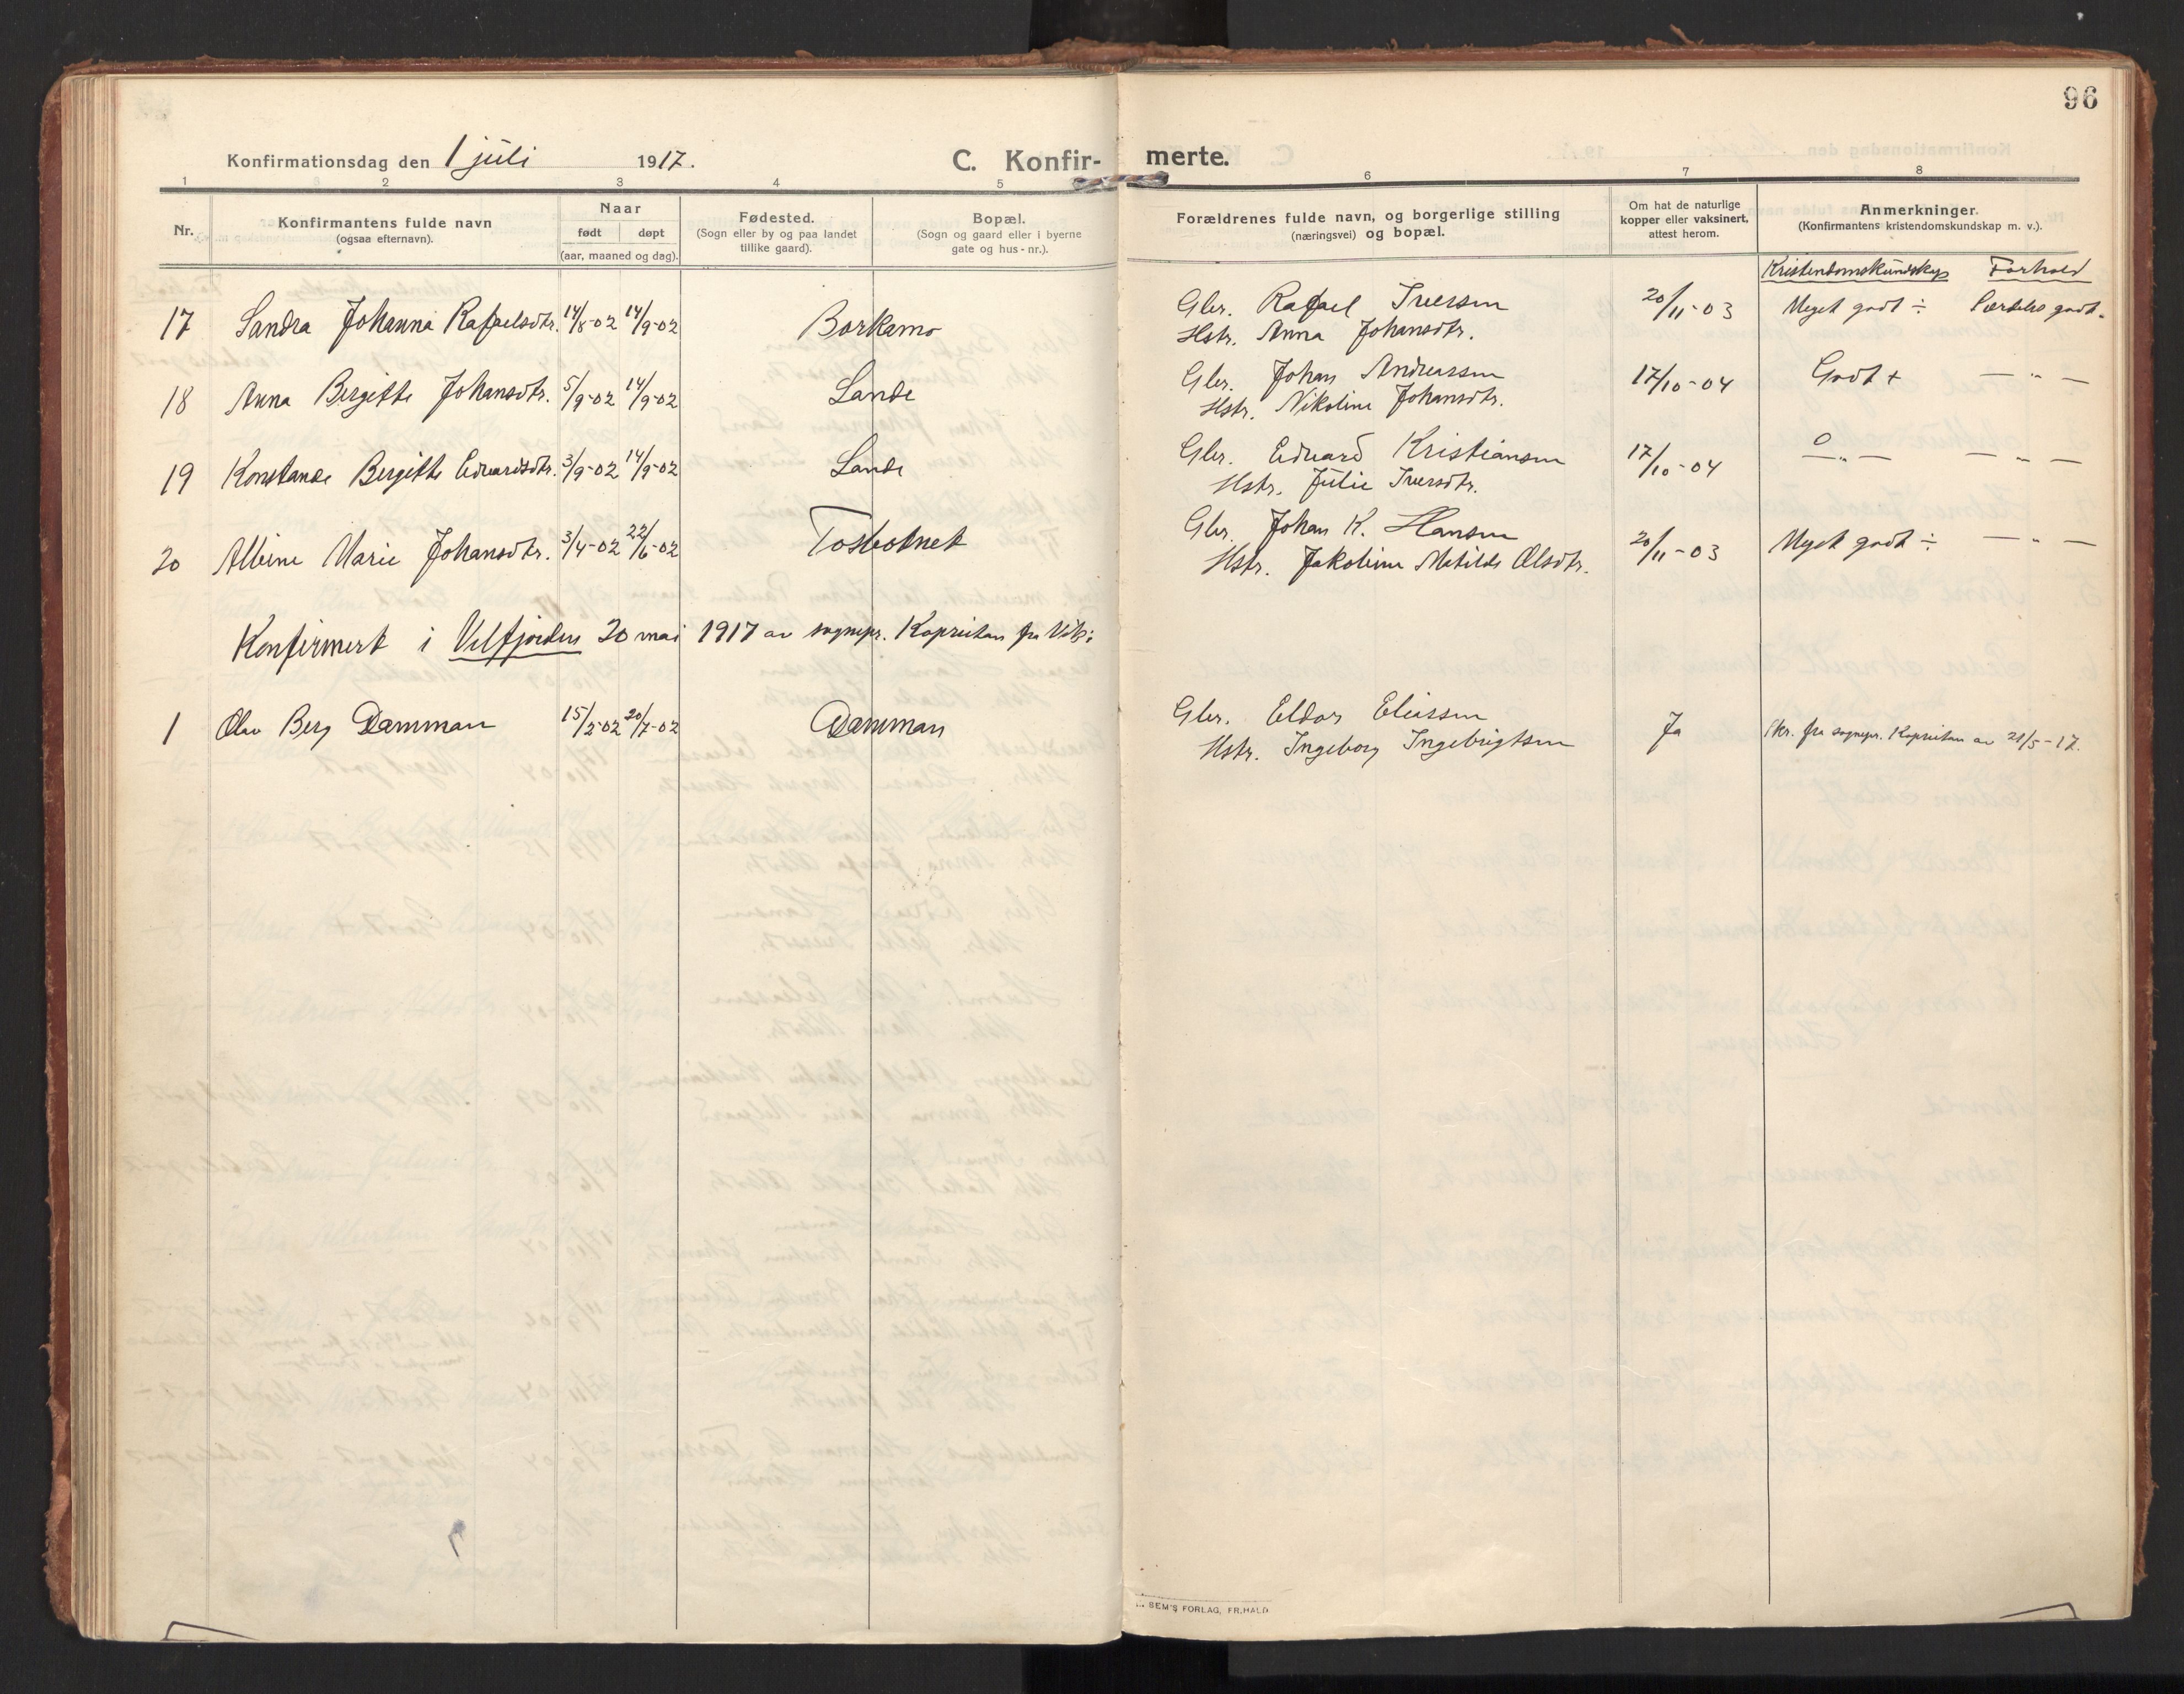 96
Konfirmationsdag den 1 juli 1917.
C. Konfirmerte.
1 2 3 4 5 6 7 8
Nr.
Konfirmantens fulde navn
(ogsaa efternavn).
Naar
født døpt
(aar, maaned og dag).
Fødested.
(Sogn eller by og paa landet
tillike gaard).
Bopæl.
(Sogn og gaard eller i byerne
gate og hus-nr.).
Forældrenes fulde navn, og borgerlige stilling
(næringsvei) og bopæl.
Om hat de naturlige
kopper eller vaksinert,
attest herom.
Anmerkninger.
(Konfirmantens kristendomskundskap m. v.).
Kristendomskundskap Forhold
17 Sandra Johanna Rafaelsdtr. 14/8-02 14/9-02 Borkamo Gbr. Rafael Iversen 20/11-03 Meget godt ÷ Særdeles godt.
Hstr. Anna Johansdtr.
18 Anna Bergitte Johansdtr. 5/9-02 14/9-02 Lande Gbr. Johan Andreassen 17/10-04 Godt + — " —
Hstr. Nikoline Johansdtr.
19 Konstanse Bergitte Edvardsdtr. 3/9-02 14/9-02 Lande Gbr. Edvard Kristiansen 17/10-04 — " — 0 — " —
Hstr. Julie Iversdtr.
20 Albine Marie Johansdtr. 3/4-02 22/6-02 Tosbotnet Gbr. Johan K. Hansen 20/11-03 Meget godt ÷ — " —
Hstr. Jakobine Matilde Olsdtr.
Konfirmert i Velfjorden 20 mai 1917 av sognepr. fra Vik:
1 Olav Berg Damman 15/2-02 20/7-02 Damman Gbr. Eldor Eliassen Ja Skr. fra sognepr. av 21/5-17.
Hstr. Ingeborg Ingebrigtsen
SEM'S FORLAG, FR.HALD